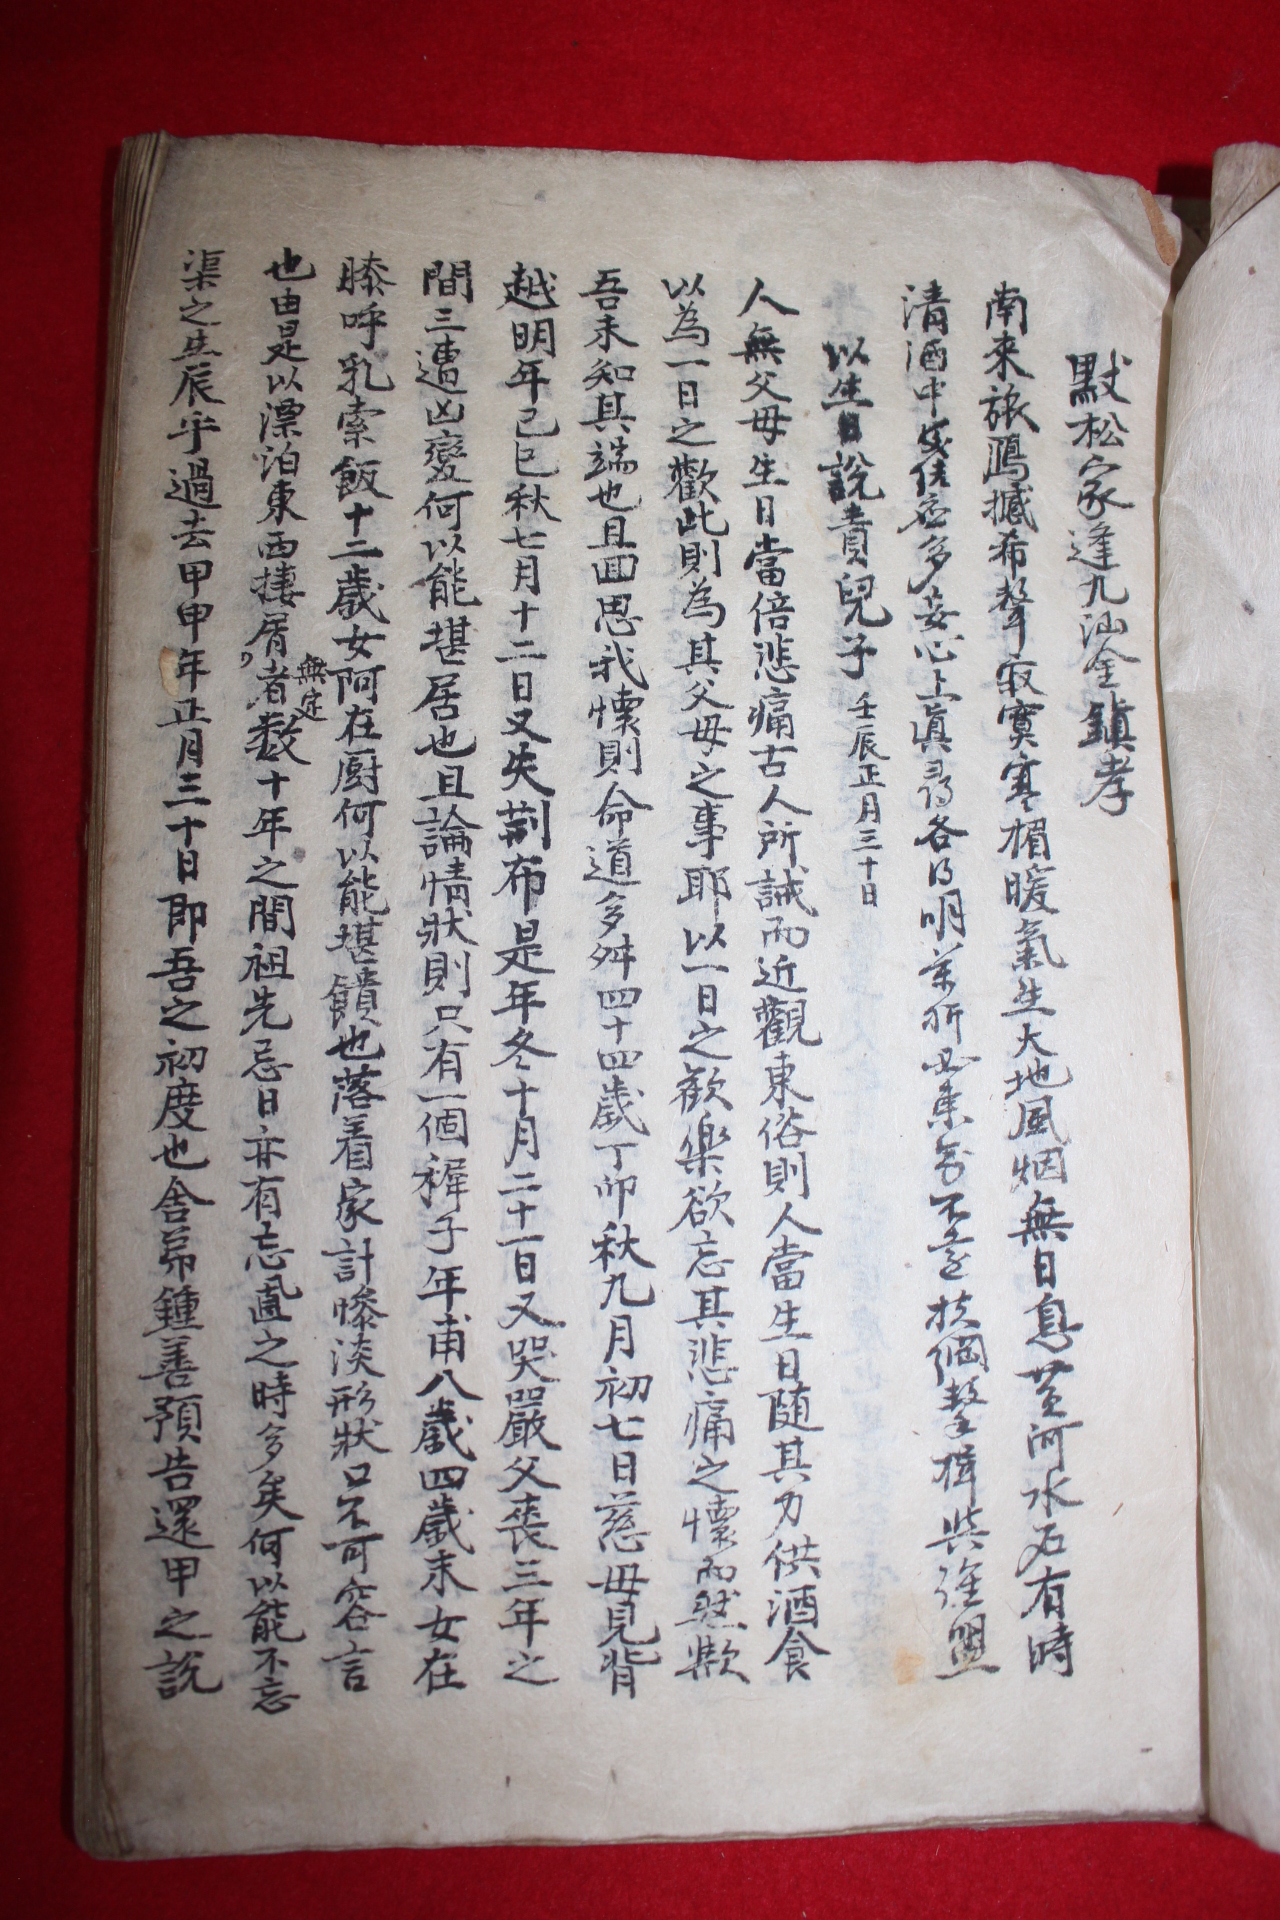 默松家逢九汕金鎮孝
南來旅鴈撼希聲寂寞寒楣暖氣生大地風烟無日息黃河水石有時
淸酒中多妄心上眞各明不扶綱整盟
以生日說責兒子 壬辰正月三十日
人無父母生日當倍悲痛古人所誡而近觀東俗則人當生日隨其力供酒食
以為一日之歡此則為其父母之事耶以一日之歡樂欲忘其悲痛之懷而然歟
吾未知其端也且回思我懷則命道多舛四十四歲丁卯秋九月初七日慈母見背
越明年己巳秋七月十二日又失荊布是年冬十月二十一日又哭嚴父喪三年之
間三遭凶變何以能堪居也且論情狀則只有一個稺子年甫八歲四歲末女在
膝呼乳索飯十二歲女阿在廚何以能堪饋也落着家計慘淡形狀口不可容言
也由是以漂泊東西捿屑無定者数十年之間祖先忌日亦有忘直之時多矣何以能不忘
渠之生辰乎過去甲申年正月三十日即吾之初度也舍弟鍾善預告還甲之說